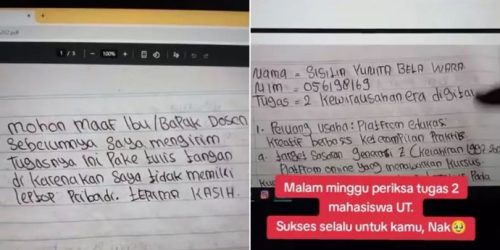 202.pdf
1 / 3 - 100% +
Mohon maaf Ibu/Bapak Dosen
Sebelumnya Saya mengirim
Tugasnya ini Pake tulis tangan
di karenakan Saya tidak memiliki
leptop Pribadi. TERIMA KASIH.
Nama = SISILIA YUNITA BELA WARA
NIM = 056198169
Tugas = 2 Kewirausahan era digital
1. Peluang usaha: Platfrom Edukasi
Kreatif berbasis keterampilan Praktis
a. target Sasaran generasi Z (Kelahiran 1997-
Platfrom online yang menawarkan Kursus-
Pada
Malam minggu periksa tugas 2
mahasiswa UT.
Sukses selalu untuk kamu, Nak🥹